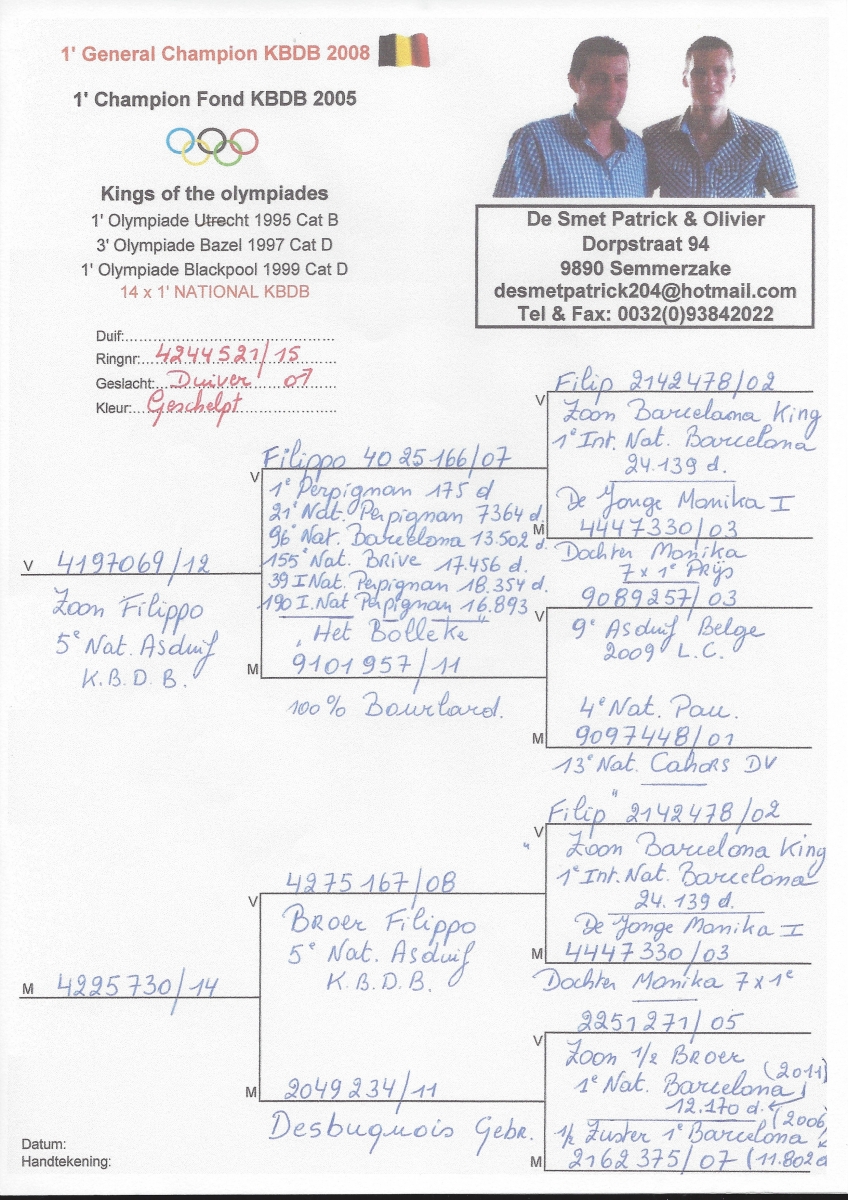 1' General Champion KBDB 2008
1' Champion Fond KBDB 2005
Kings of the olympiades
1' Olympiade Utrecht 1995 Cat B
3' Olympiade Bazel 1997 Cat D
1' Olympiade Blackpool 1999 Cat D
14 x 1' NATIONAL KBDB
De Smet Patrick & Olivier
Dorpstraat 94
9890 Semmerzake
desmetpatrick204@hotmail.com
Tel & Fax: 0032(0)93842022
Duif:
Ringnr: 4244521/15
Geslacht: Duiver ♂
Kleur: Geschelpt
V 4197069/12
Zoon Filippo
5e Nat. Asduif
K.B.D.B.
V Filippo 4025166/07
1e Perpignan 175 d
21e Nat. Perpignan 7364 d.
96e Nat. Barcelona 13.502 d.
155e Nat. Brive 17.456 d.
39 I Nat. Perpignan 18.354 d.
190 I.Nat Perpignan 16.893
"Het Bolleke"
M 9101957/11
100% Bourlard.
V Filip 2142478/02
Zoon Barcelona King
1e Int. Nat. Barcelona
24.139 d.
De Jonge Monika I
M 4447330/03
Dochter Monika
7x1e Prijs
V 9089257/03
9e Asduif Belge
2009 L.C.
4e Nat. Pau.
M 9097448/01
13e Nat. Cahors DV
M 4225730/14
V 4275167/08
Broer Filippo
5e Nat. Asduif
K.B.D.B.
M 2049234/11
Desbuquois Gebr.
V "Filip" 2142478/02
Zoon Barcelona King
1e Int. Nat. Barcelona
24.139 d.
De Jonge Monika I
M 4447330/03
Dochter Monika 7x1e
V 2251271/05
Zoon 1/2 Broer
1e Nat. Barcelona (2011)
12.170 d.
1/2 Zuster 1e Barcelona (2006)
M 2162375/07 (11.802 d
Datum:
Handtekening: